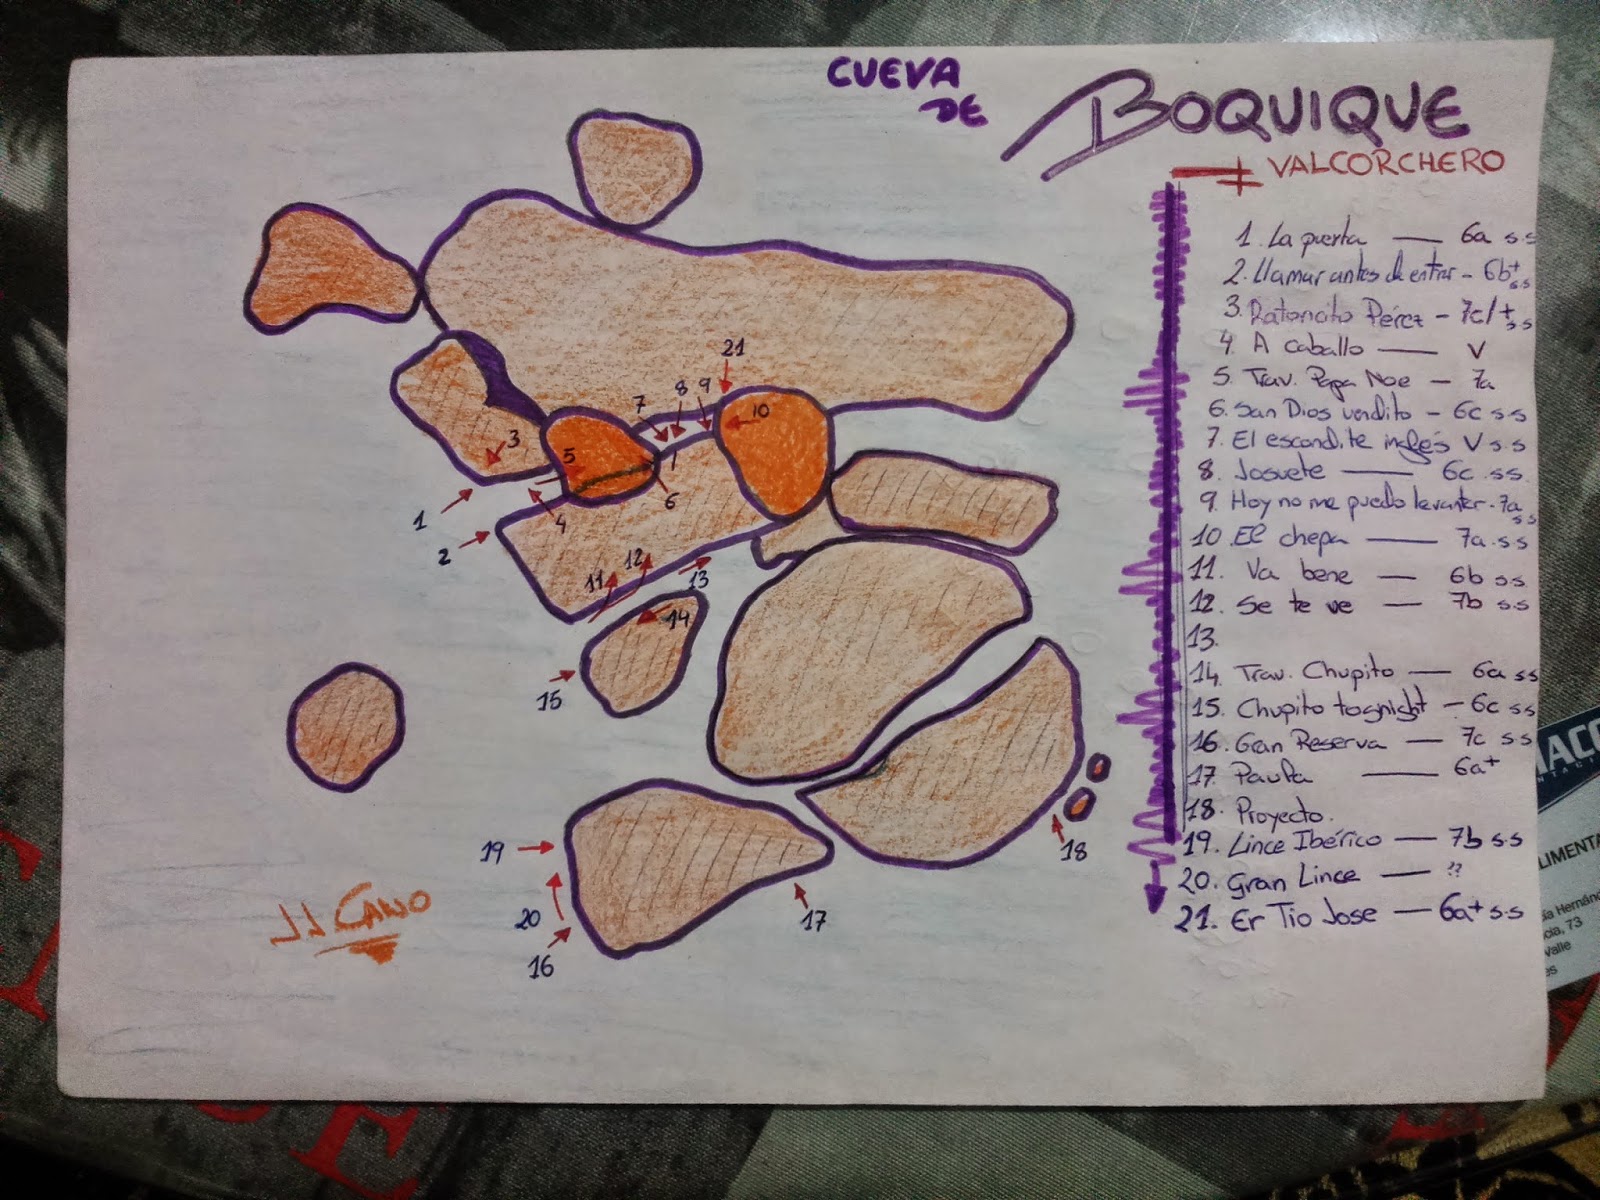 CUEVA
DE
BOQUIQUE
VALCORCHERO
1. La puerta — 6a s.s
2. Llamar antes de entrar - 6b+ s.s
3. Ratoncito Pérez - 7c/+ s.s
4. A caballo — V
5. Trav. Papa Noe — 7a
6. San Dios vendito - 6c s.s
7. El escondite inglés V s.s
8. Josuete — 6c ss
9. Hoy no me puedo levantar - 7a s.s
10. El chepa — 7a s.s
11. Va bene — 6b s.s
12. Se te ve — 7b s.s
13.
14. Trav. Chupito — 6a ss
15. Chupito tognight - 6c s.s
16. Gran Reserva — 7c s.s
17. Paula — 6a+
18. Proyecto.
19. Lince Ibérico — 7b s.s
20. Gran Lince — ??
21. Er Tio Jose — 6a+ s.s
21
7 8 9 10
3
5
1
4
6
2
11 12 13
14
15
19
20
16
17
18
JJ CANO
MACO
LIMENTA
ia Hernán
cia, 73
Valle
es